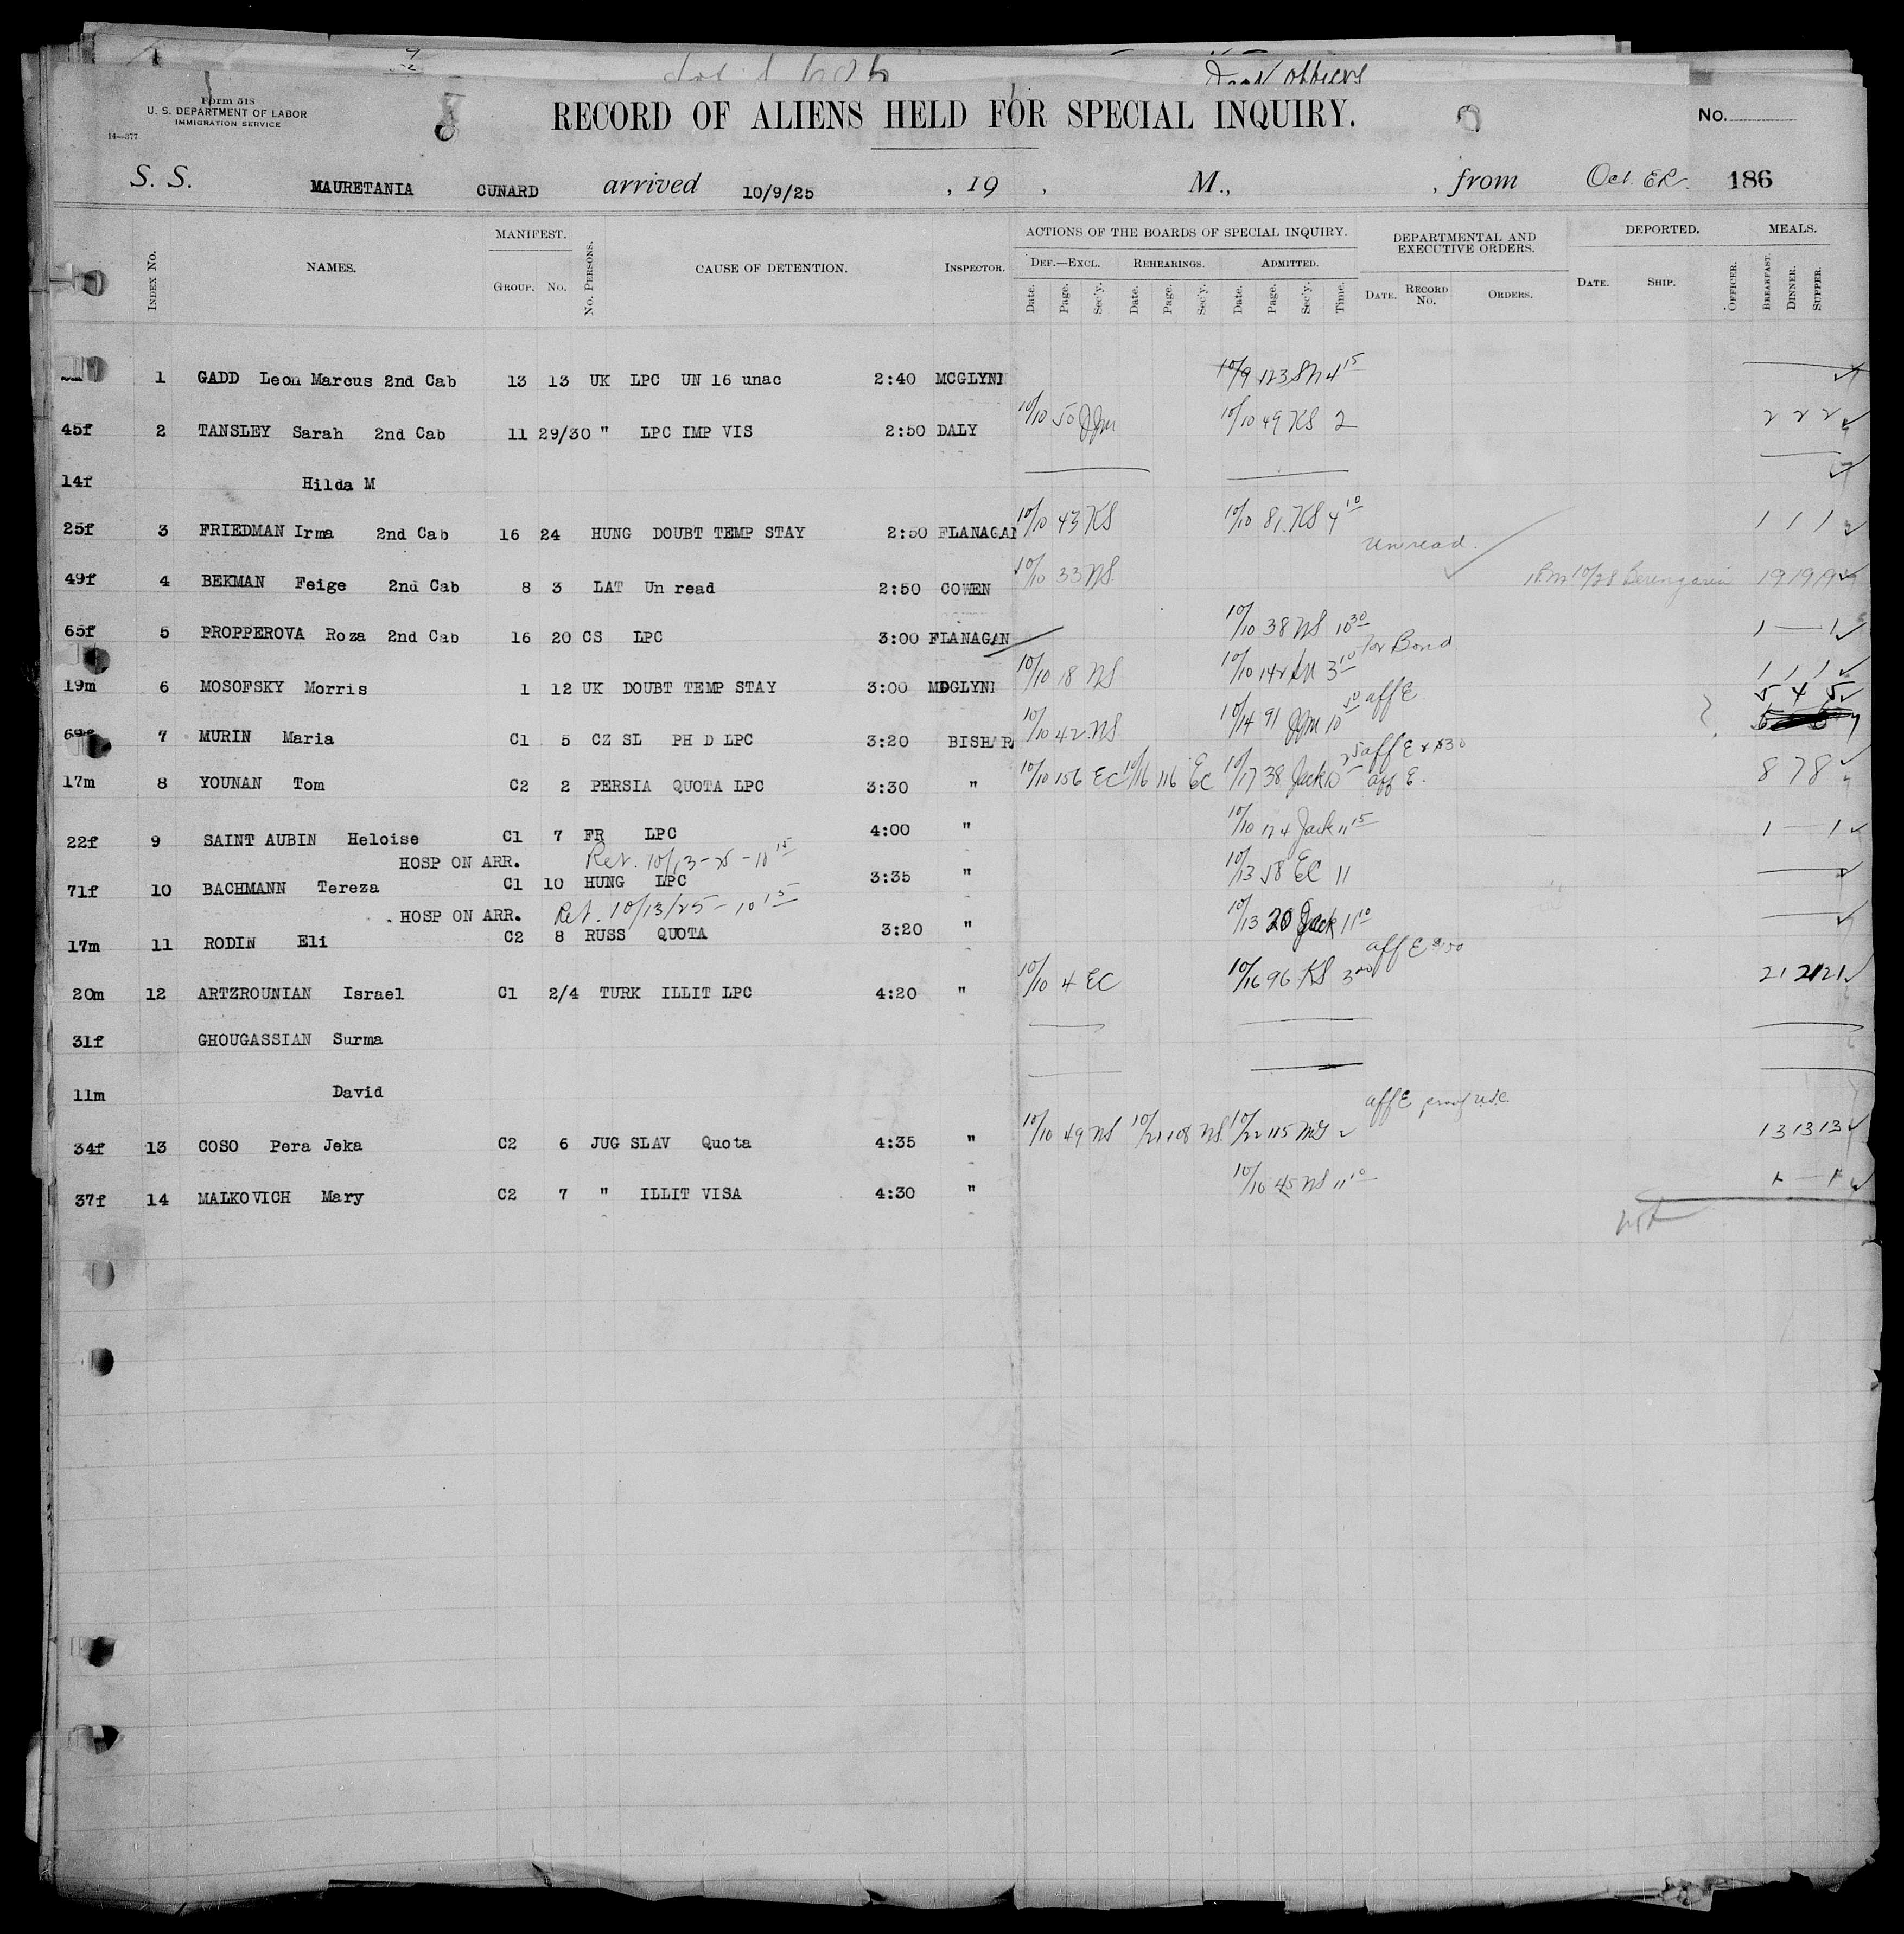 Dear Officers
Form 518
U. S. DEPARTMENT OF LABOR
IMMIGRATION SERVICE
14—377
RECORD OF ALIENS HELD FOR SPECIAL INQUIRY.
No.
S. S. MAURETANIA CUNARD arrived 10/9/25 , 19 , M., , from Oct. ER. 186
INDEX No. NAMES. MANIFEST. GROUP. No. No. PERSONS. CAUSE OF DETENTION. INSPECTOR. ACTIONS OF THE BOARDS OF SPECIAL INQUIRY. DEF.—EXCL. Date. Page. Sec'y. REHEARINGS. Date. Page. Sec'y. ADMITTED. Date. Page. Sec'y. Time. DEPARTMENTAL AND EXECUTIVE ORDERS. DATE. RECORD No. ORDERS. DEPORTED. DATE. SHIP. OFFICER. MEALS. BREAKFAST. DINNER. SUPPER.
1 GADD Leon Marcus 2nd Cab 13 13 UK LPC UN 16 unac 2:40 MCGLYNN 10/9 123 SN 4 15
45f 2 TANSLEY Sarah 2nd Cab 11 29/30 " LPC IMP VIS 2:50 DALY 10/10 50 JJM 10/10 49 KS 2 2 2 2
14f Hilda M
25f 3 FRIEDMAN Irma 2nd Cab 16 24 HUNG DOUBT TEMP STAY 2:50 FLANAGAN 10/10 43 KS 10/10 81 KS 4 10 1 1 1
Unread.
49f 4 BEKMAN Feige 2nd Cab 8 3 LAT Un read 2:50 COWEN 10/10 33 NS. 10/28 Berengaria 19 19 19
65f 5 PROPPEROVA Roza 2nd Cab 16 20 CS LPC 3:00 FLANAGAN 10/10 38 NS 10 30 1 — 1
for Bond
19m 6 MOSOFSKY Morris 1 12 UK DOUBT TEMP STAY 3:00 MCGLYNN 10/10 18 NS 10/10 142 SN 3 10 1 1 1
aff E 5 4 5
7 MURIN Maria C1 5 CZ SL PH D LPC 3:20 BISHAR 10/10 42 NS 10/14 91 JJM 10 50
aff E
17m 8 YOUNAN Tom C2 2 PERSIA QUOTA LPC 3:30 " 10/10 156 EC 10/16 116 EC 10/17 38 Jack 10 25 aff E. 8 7 8
22f 9 SAINT AUBIN Heloise C1 7 FR LPC 4:00 " 10/10 124 Jack 11 15 1 — 1
HOSP ON ARR. Ret. 10/13-25-10 15
71f 10 BACHMANN Tereza C1 10 HUNG LPC 3:35 " 10/13 58 EC 11
HOSP ON ARR. Ret. 10/13/25-10 15
17m 11 RODIN Eli C2 8 RUSS QUOTA 3:20 " 10/13 20 Jack 11 10
aff E
20m 12 ARTZROUNIAN Israel C1 2/4 TURK ILLIT LPC 4:20 " 10/10 4 EC 10/16 96 KS 3 21 21 21
31f GHOUGASSIAN Surma
11m David
aff E
34f 13 COSO Pera Jeka C2 6 JUG SLAV Quota 4:35 " 10/10 49 NS 10/21 108 NS 10/22 115 13 13 13
37f 14 MALKOVICH Mary C2 7 " ILLIT VISA 4:30 " 10/10 45 NS 11 10 1 — 1